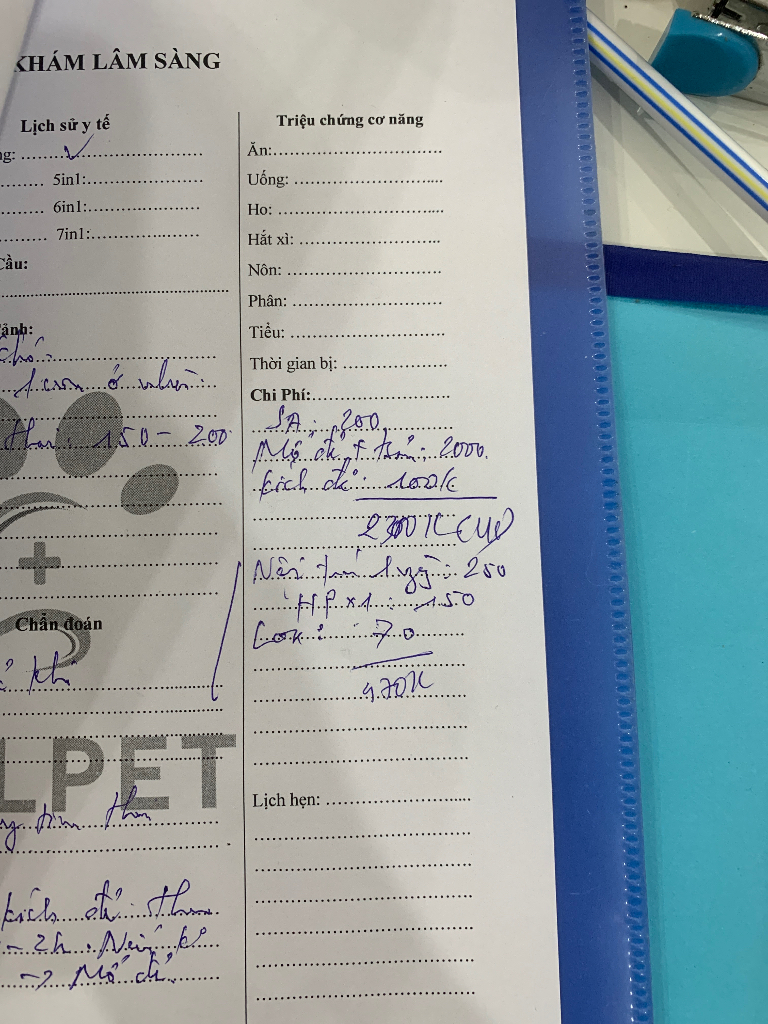 KHÁM LÂM SÀNG
Lịch sử y tế
ng: ..............................
5in1:..............................
6in1:..............................
7in1:..............................
Cầu:
chó:
1 con ở nhà:
thai: 150 - 200
Chẩn đoán
khó
LPET
tim thai
kích đẻ thêm
- 2h. Nếu k°
-> Mổ đẻ.
Triệu chứng cơ năng
Ăn:..............................
Uống: ..............................
Ho: ..............................
Hắt xì: ..............................
Nôn: ..............................
Phân: ..............................
Tiểu: ..............................
Thời gian bị: ....................
Chi Phí:..............................
SA: 200
Mổ đẻ + : 2000.
kích đẻ: 100k
2300K
: 250
HP x1: 150
Lox: 70
470K
Lịch hẹn: ..............................